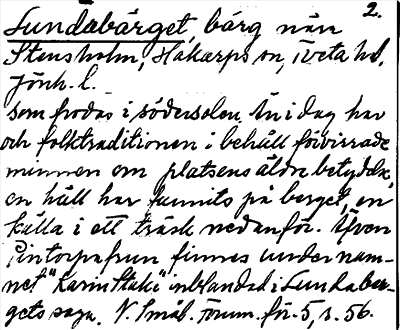 2.
Sundabärget, bärg nära
Stensholm, Hakarps sn, Tveta hd,
Jönk. l.
som frodas i södersolen. Än i dag har
och folktraditionen i behåll förvirrade
minnen om platsens äldre betydelse,
en häll har funnits på berget, en
källa i ett träsk nedanför. Även
Pintorpafrun finnes under nam-
net "Karin Stake" inblandad i Sundaber-
gets saga. N. Smål. Fornm. för. 5, s. 56.